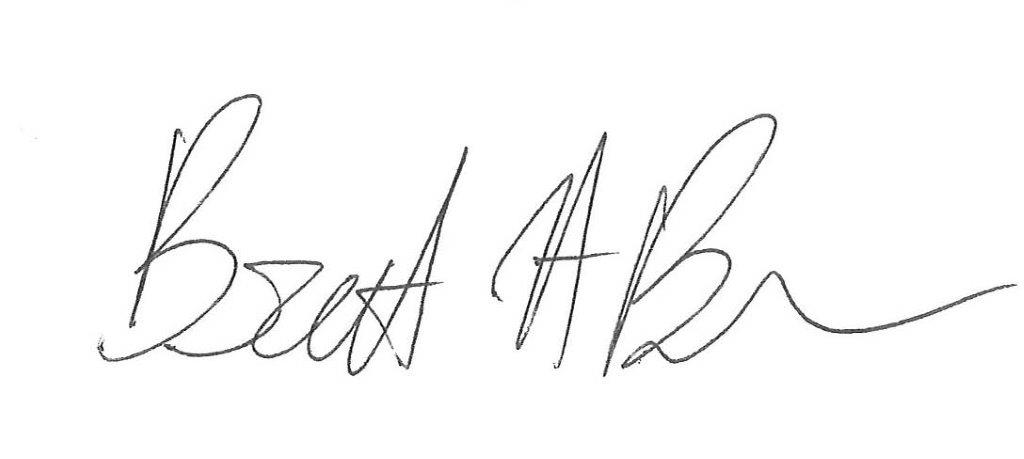 Brett A B